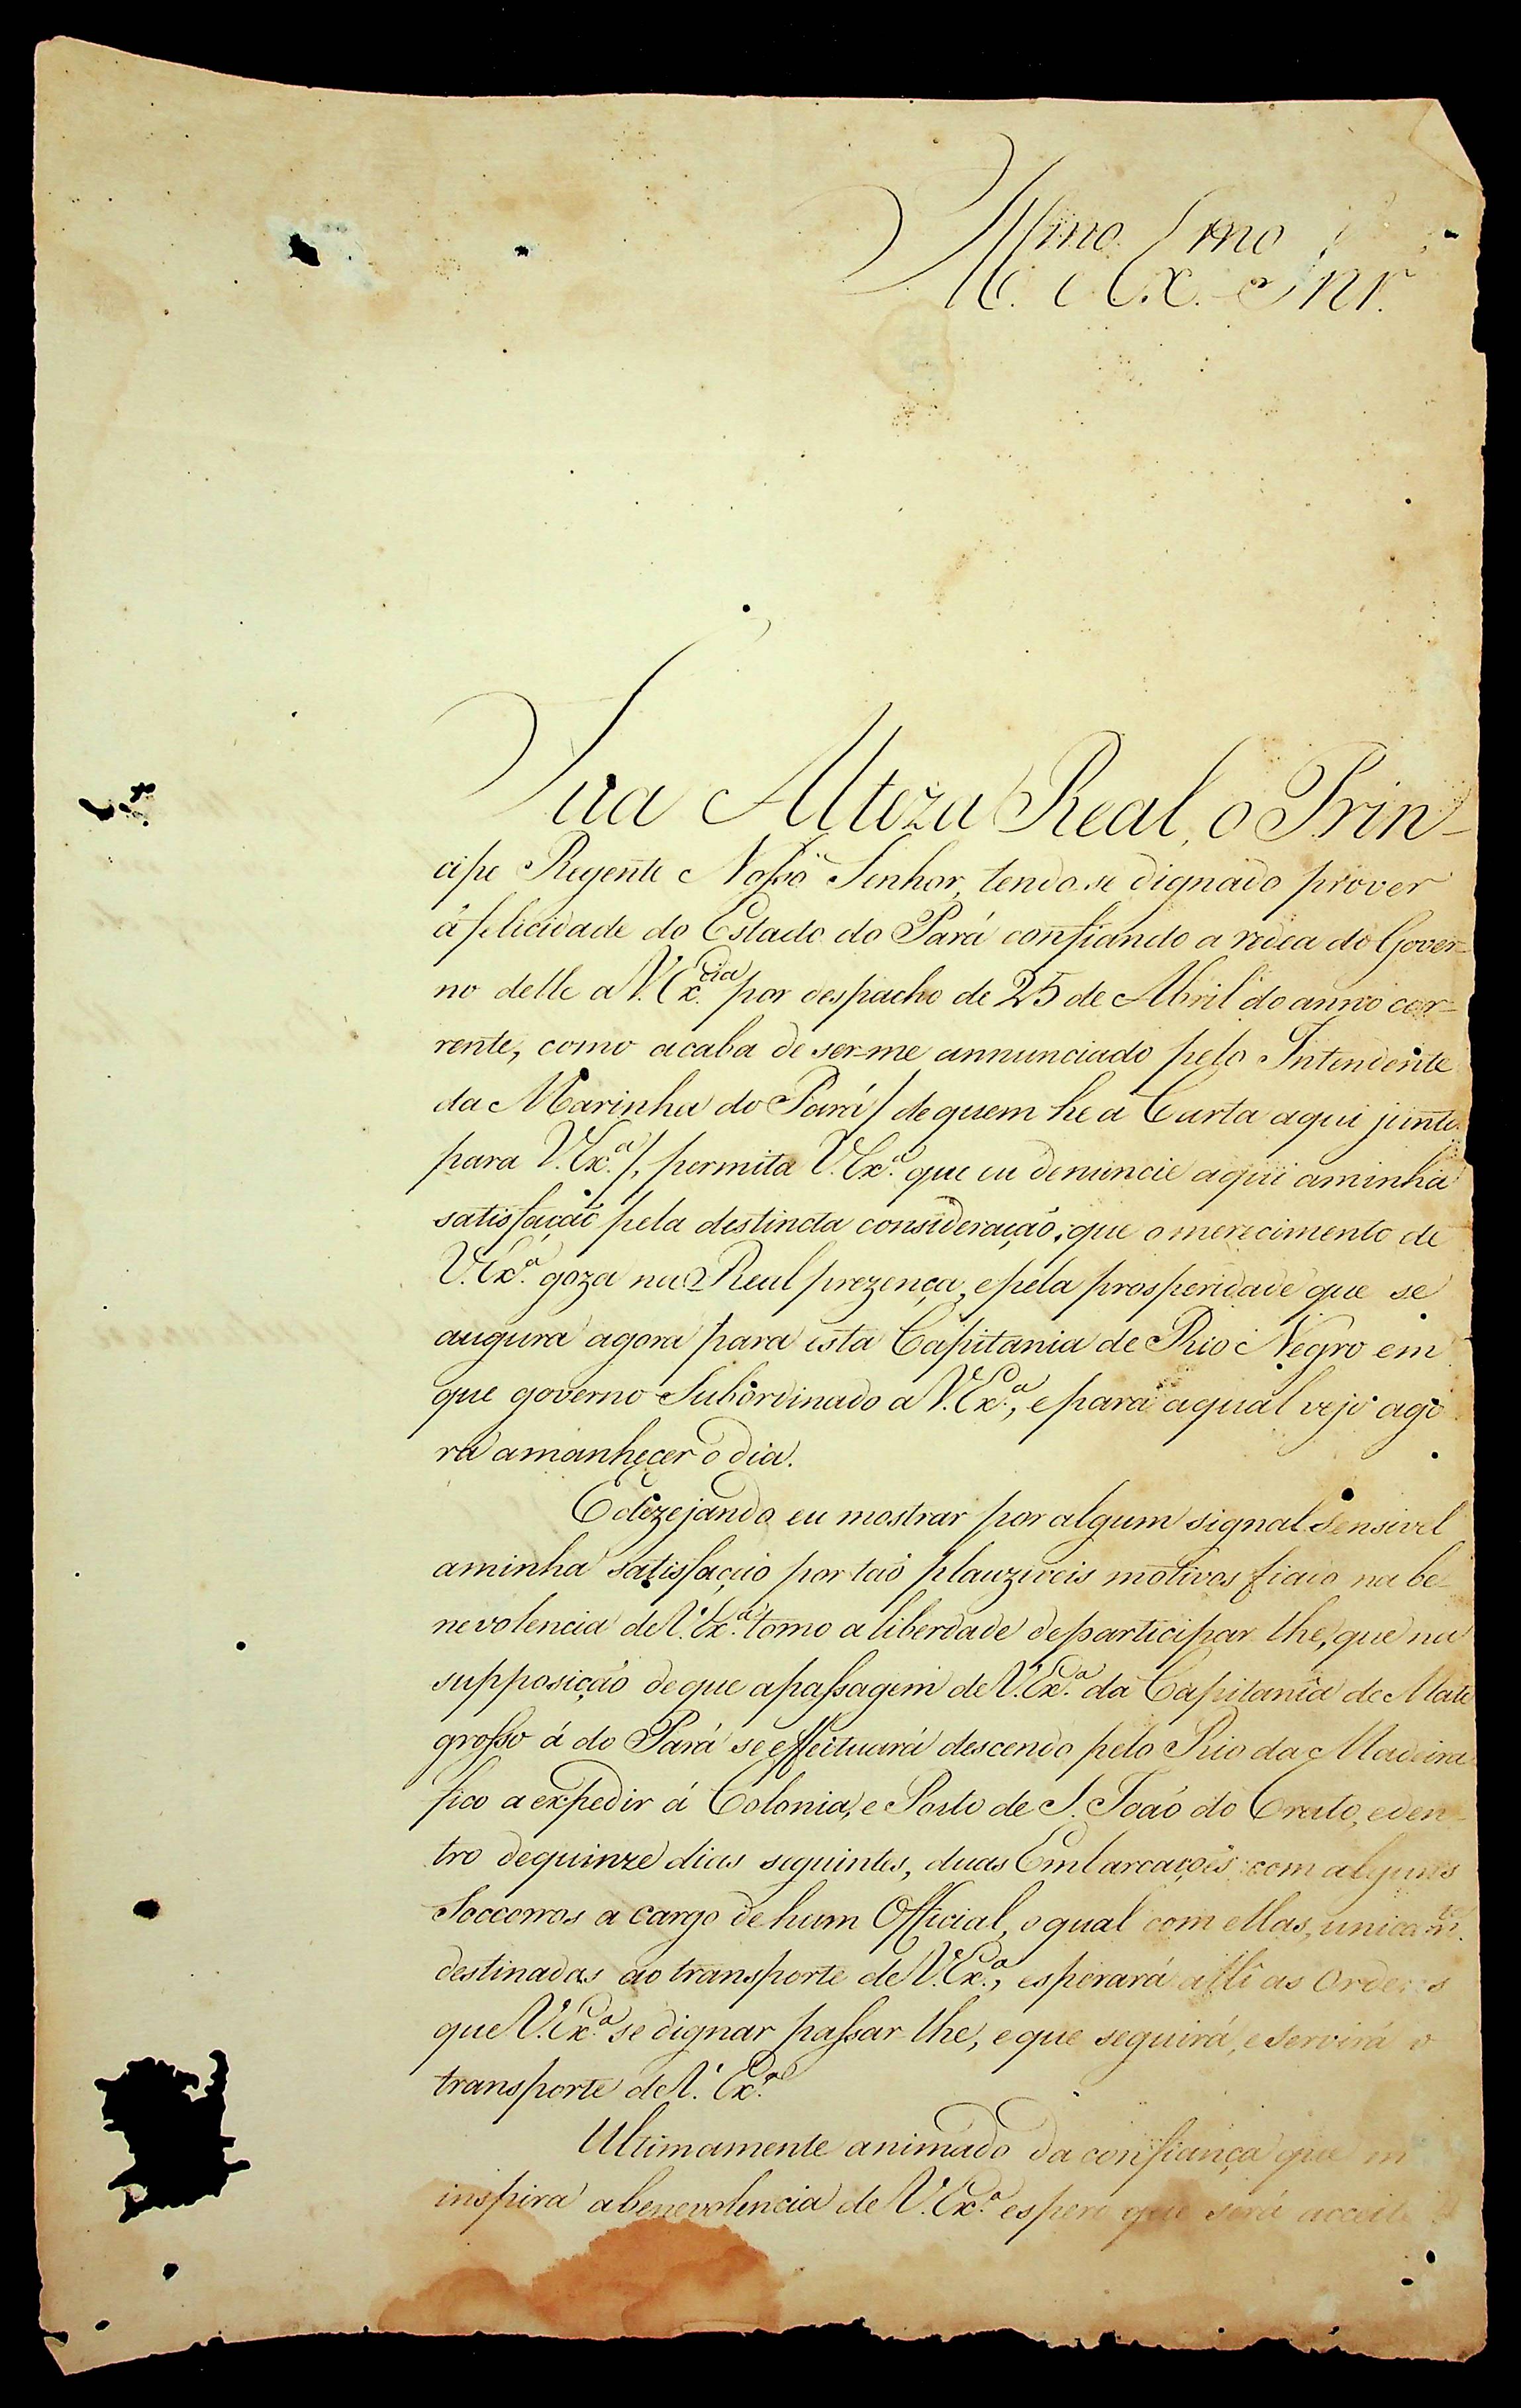 Illmo. e Exmo. Snr.
Sua Alteza Real, o Prin-
cipe Regente Nosso Senhor, tendo-se dignado prover
á felicidade do Estado do Pará confiando a redea do Gover-
no delle a V. Ex.cia por despacho de 25 de Abril do anno cor-
rente, como acaba de ser-me annunciado pelo Intendente
da Marinha do Pará / de quem he a Carta aqui junta
para V. Ex.a /, permita V. Ex.a que eu denuncie aqui a minha
satisfação pela destincta consideração, que o merecimento de
V. Ex.a goza na Real prezença, e pela prosperidade que se
augura agora para esta Capitania de Rio Negro em
que governo Subordinado a V. Ex.a, e para a qual vejo ago
ra amanhecer o dia.
E dezejando eu mostrar por algum signal sensivel
a minha satisfação por taõ plauziveis motivos fiado na be-
nevolencia de V. Ex.a tomo a liberdade de participar-lhe, que na
supposição de que a passagem de V. Ex.a da Capitania de Mato
grosso á do Pará se effeituará descendo pelo Rio da Madeira
fico a expedir á Colonia, e Porto de S. João do Crato, e den-
tro de quinze dias seguintes, duas Embarcações com alguns
Soccorros a cargo de hum Official, o qual com ellas, unicam.te
destinadas ao transporte de V. Ex.a, esperará alli as Ordens
que V. Ex.a se dignar passar-lhe, e que seguirá, e servirá o
transporte de V. Ex.a
Ultimamente animado da confiança que m
inspira a benevolencia de V. Ex.a espero que será acceite